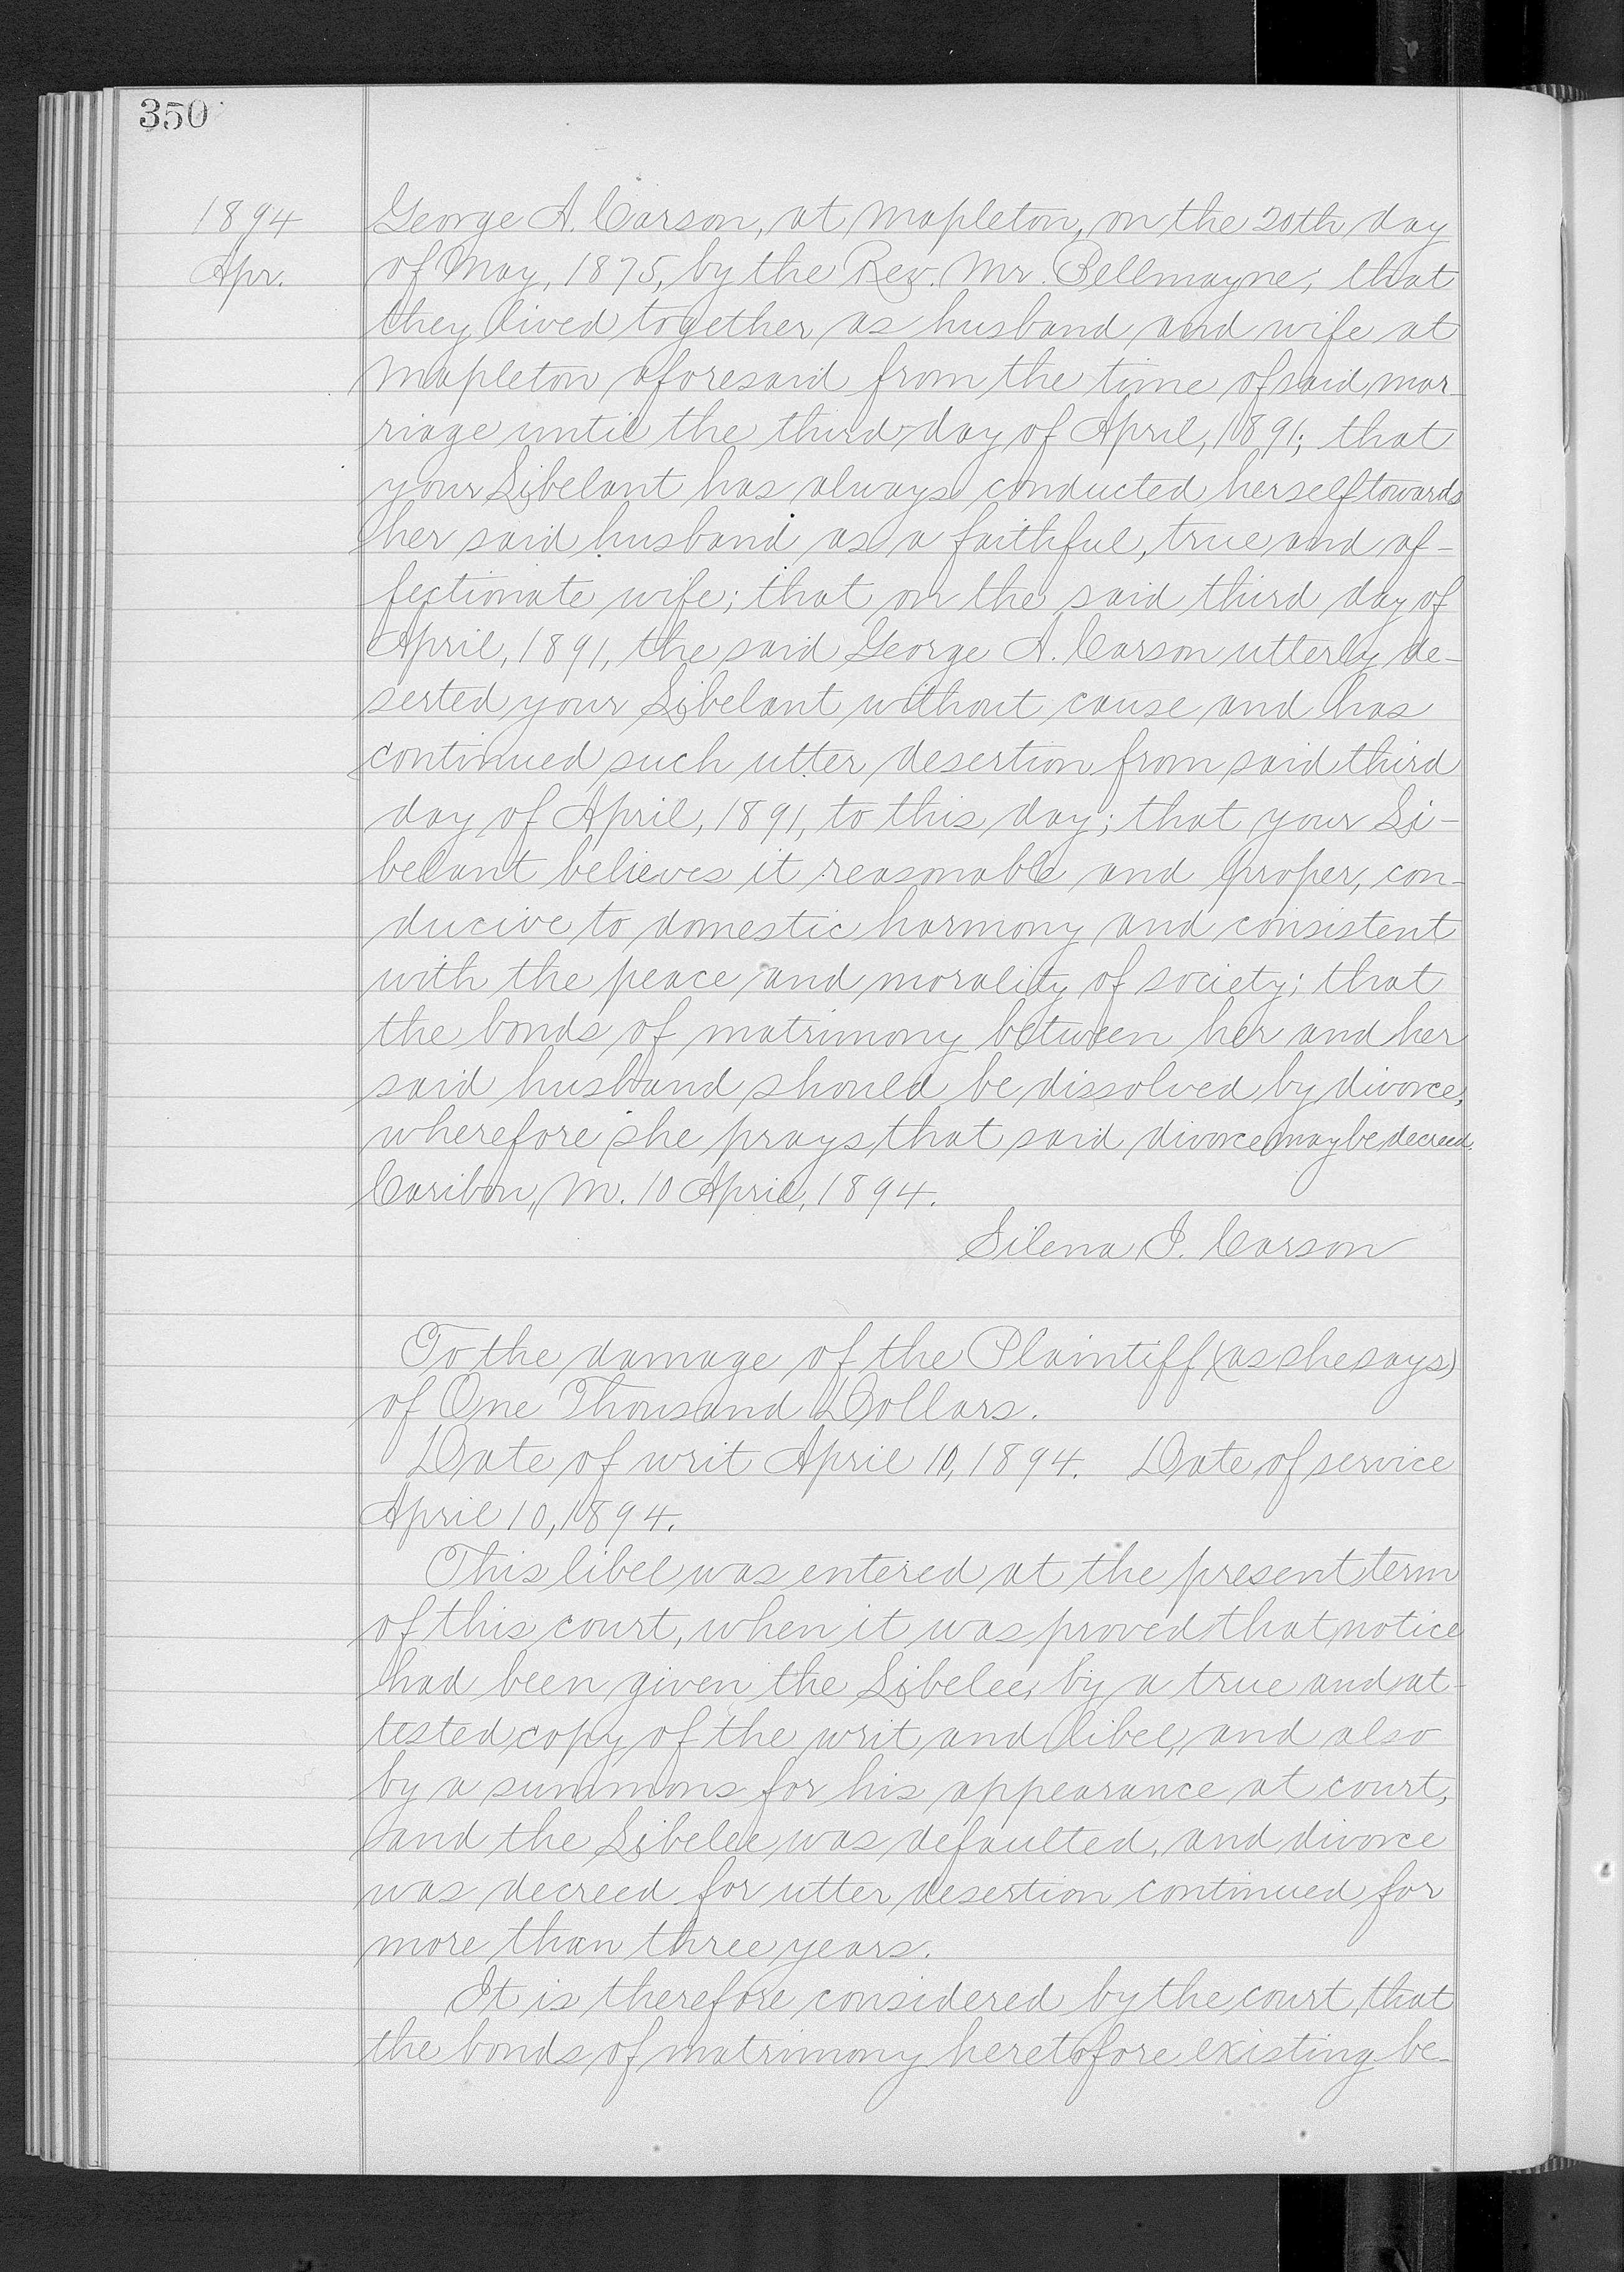 350
1894
Apr.
George A. Carson, at Mapleton, on the 20th day
of May, 1875, by the Rev. Mr. Bellmayne; that
they lived together as husband and wife at
Mapleton aforesaid from the time of said mar-
riage until the third day of April, 1891; that
your Libelant has always conducted herself towards
her said husband as a faithful, true and af-
fectionate wife; that on the said third day of
April, 1891, the said George A. Carson utterly de-
serted your Libelant without cause and has
continued such utter desertion from said third
day of April, 1891, to this day; that your Li-
belant believes it reasonable and proper, con-
ducive to domestic harmony and consistent
with the peace and morality of society; that
the bonds of matrimony between her and her
said husband should be dissolved by divorce,
wherefore she prays that said divorce may be decreed.
Caribou, M. 10 April, 1894.
Silena I. Carson
To the damage of the Plaintiff (as she says)
of One Thousand Dollars.
Date of writ April 10, 1894. Date of service
April 10, 1894.
This libel was entered at the present term
of this court, when it was proved that notice
had been given the Libelee, by a true and at-
tested copy of the writ and libel, and also
by a summons for his appearance at court,
and the Libelee was defaulted, and divorce
was decreed for utter desertion continued for
more than three years.
It is therefore considered by the court, that
the bonds of matrimony heretofore existing be-